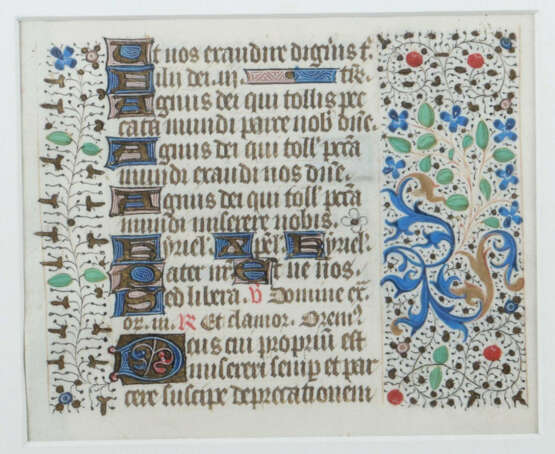 Ut nos exaudire digius t̄
Filii dei. iii. te.
Agnus dei qui tollis pec
cata mundi parce nob dn̄e.
Agnus dei qui toll' pcc̄a
mundi exaudi nos dn̄e.
Agnus dei qui toll' pcc̄a
mundi miserere nobis.
Kyriel'. Xpel'. Kyriel'.
Pater nr̄. Et ne nos.
Sed libera. V Domine ex̄.
or. m. R Et clamor. Orem'
Deus cui propriū est
misereri semp et par
cere suscipe deprecationem